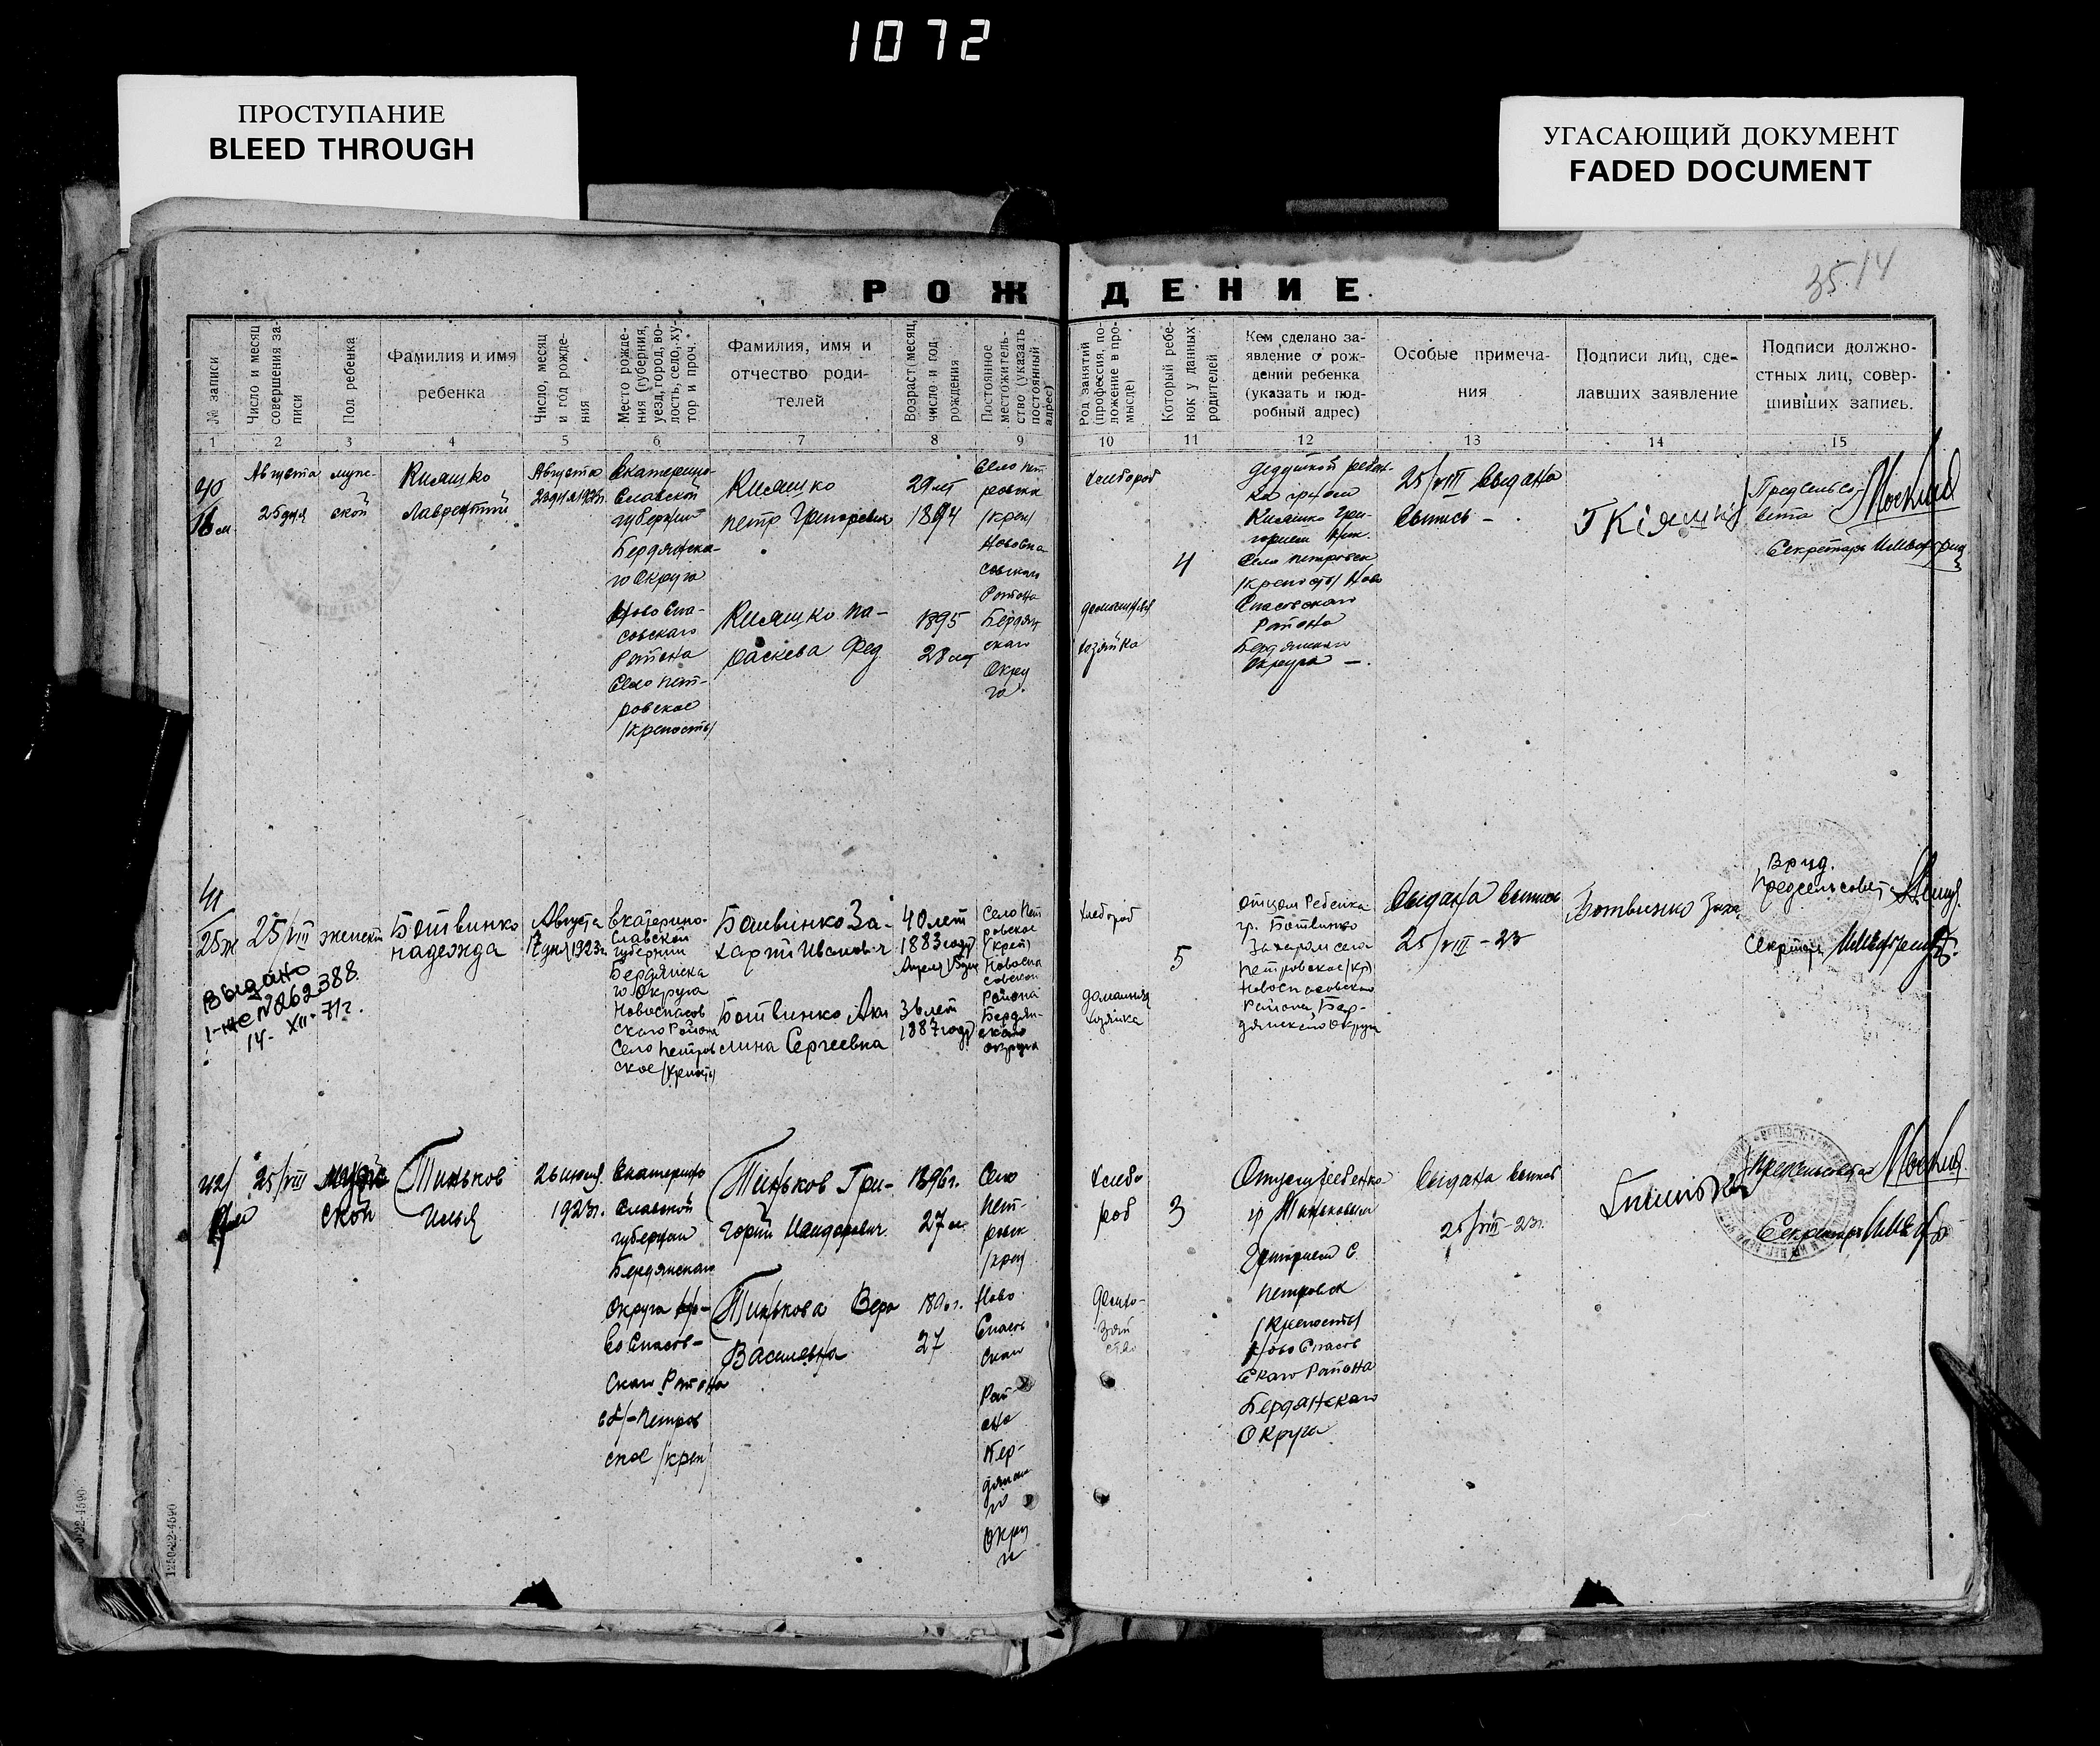 1072
ПРОСТУПАНИЕ
BLEED THROUGH
УГАСАЮЩИЙ ДОКУМЕНТ
FADED DOCUMENT
3514
РОЖДЕНИЕ
№ записи
Число и месяц совершения записи
Пол ребенка
Фамилия и имя
ребенка
Число, месяц
и год рожде-
ния
Место рожде-
ния (губерния,
уезд, город, во-
лость, село, ху-
тор и проч.
Фамилия, имя и
отчество роди-
телей
Возраст (месяц,
число и год
рождения
Постоянное
местожитель-
ство (указать
постоянный
адрес)
Род занятий
(профессия, по-
ложение в про-
мысле)
Который ребе-
нок у данных
родителей
Кем сделано за-
явление о рож-
дении ребенка
(указать и под-
робный адрес)
Особые примеча-
ния
Подписи лиц, сде-
лавших заявление
Подписи должно-
стных лиц, совер-
шивших запись.
1 2 3 4 5 6 7 8 9 10 11 12 13 14 15
40
Августа
25 дня
муж-
ской
Кияшко
Лаврентий
Августа
Екатерино-
Славской
губернии
Бердянска-
го Округа
Ново Спа-
совскаго
Района
Село Пет-
ровское
(крепость)
Кияшко
Петр Григорьевич
Кияшко Па-
раскева Фед
29 лет
1894
1895
28 лет
Село Пет
ровска
(креп)
Новоспа
совскаго
Района
Бердян
скаго
Окру
га
хлебороб
хозяйка
4
Дедушкой ребен-
ка
Кияшко Гри-
горием
Село Петровск
(крепость) Ново
Спасовскаго
Района
Бердянскаго
Округа —
25/VIII Выдана
выпись —
Г Кіяшко
Предсельсо-
вета
Секретарь
41
25/VIII
женск
Ботвинко
Надежда
Августа
17 дня 1923г.
Екатерино-
Славской
губернии
Бердянска
го Округа
Новоспасов
скаго Района
Село Петров
ское (крепость)
Ботвинко За-
харий Иванович
Ботвинко Аку
лина Сергеевна
40 лет
1883 году
36 лет
1887 году
Село Пет
ровское
(креп)
Новоспа
совской
Района
Бердян-
скаго
округа
хлебороб
домашняя
хозяйка
5
отцом Ребенка
гр. Ботвинко
Захаром село
Петровское (кр)
Новоспасовскаго
Района, Бер-
дянскаго Округа
Выдана выпись
25/VIII-23
Ботвинко Заха
Врид.
Предсельсовет
Секретарь
Выдано
1-же № 2262388.
14-XII-71г.
42
25/VIII
мужс
ской
Тиньков
Илья
26 июля
1923г.
Екатерино
Славской
губернии
Бердянскаго
Округа Но-
во Спасов-
скаго Района
Петров
ское (креп)
Тиньков Гри-
горий
Тинькова Вера
Васильевна
1896г.
27 л.
27
Село
Пет-
ровск
(креп)
Ново
Спасов
скаго
Рай-
она
Бер-
дянска
го
Окру
га
хлебо
роб
3
Отцом ребенка
гр Тиньковым
Григорием С.
Петровск
(Крепость)
Ново Спасов
Скаго Района
Бердянскаго
Округа
Выдана выпись
25/VIII-23г.
Предсельсовета
Секретарь
1250-22-4590